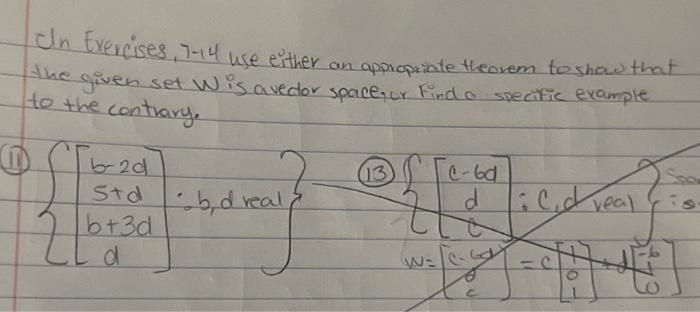 In Exercises, 7-14 use either an appropriate theorem to show that
the given set W is a vector space, or Find a specific example
to the contrary.
(11) { [ b-2d
5+d
b+3d
d ] : b, d real }
(13) { [ c-6d
d
c ] : c, d real }
is
W = [ c-6d
c ] = c [ 1
0
1 ] + d [ -6
1
0 ]